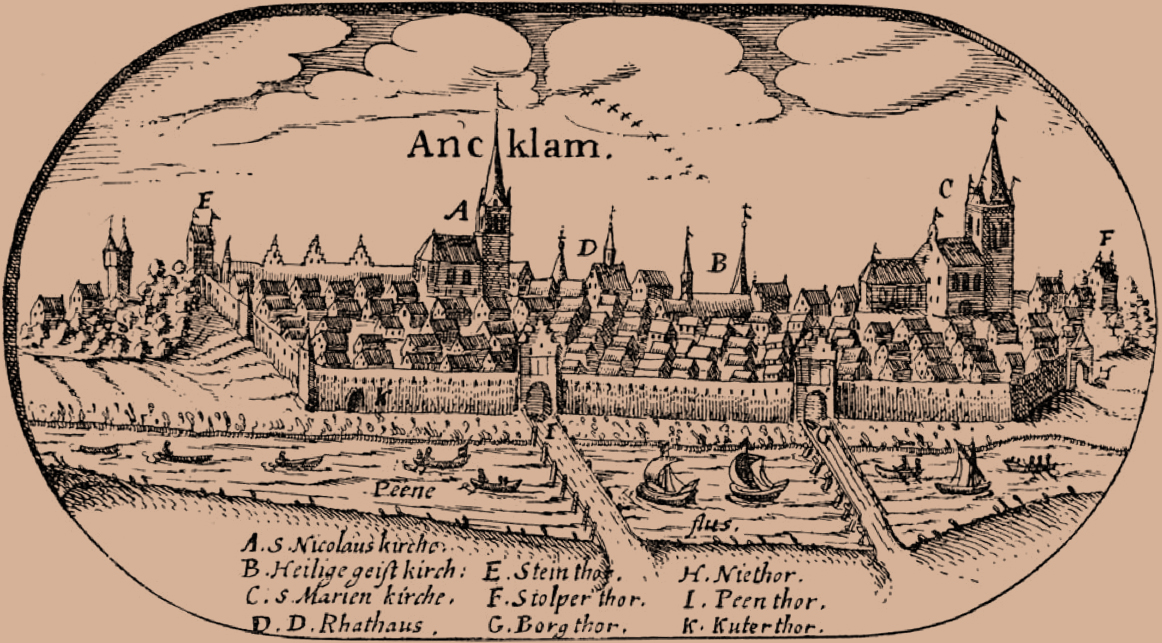 Anc klam.
E
A
D
B
C
F
K
I
G
Peene
flus.
A. S. Nicolaus kirche.
B. Heilige geist kirch: E. Stein thor. H. Niethor.
C. S. Marien kirche. F. Stolper thor. I. Peen thor.
D. D. Rhathaus. G. Borg thor. K. Kuterthor.